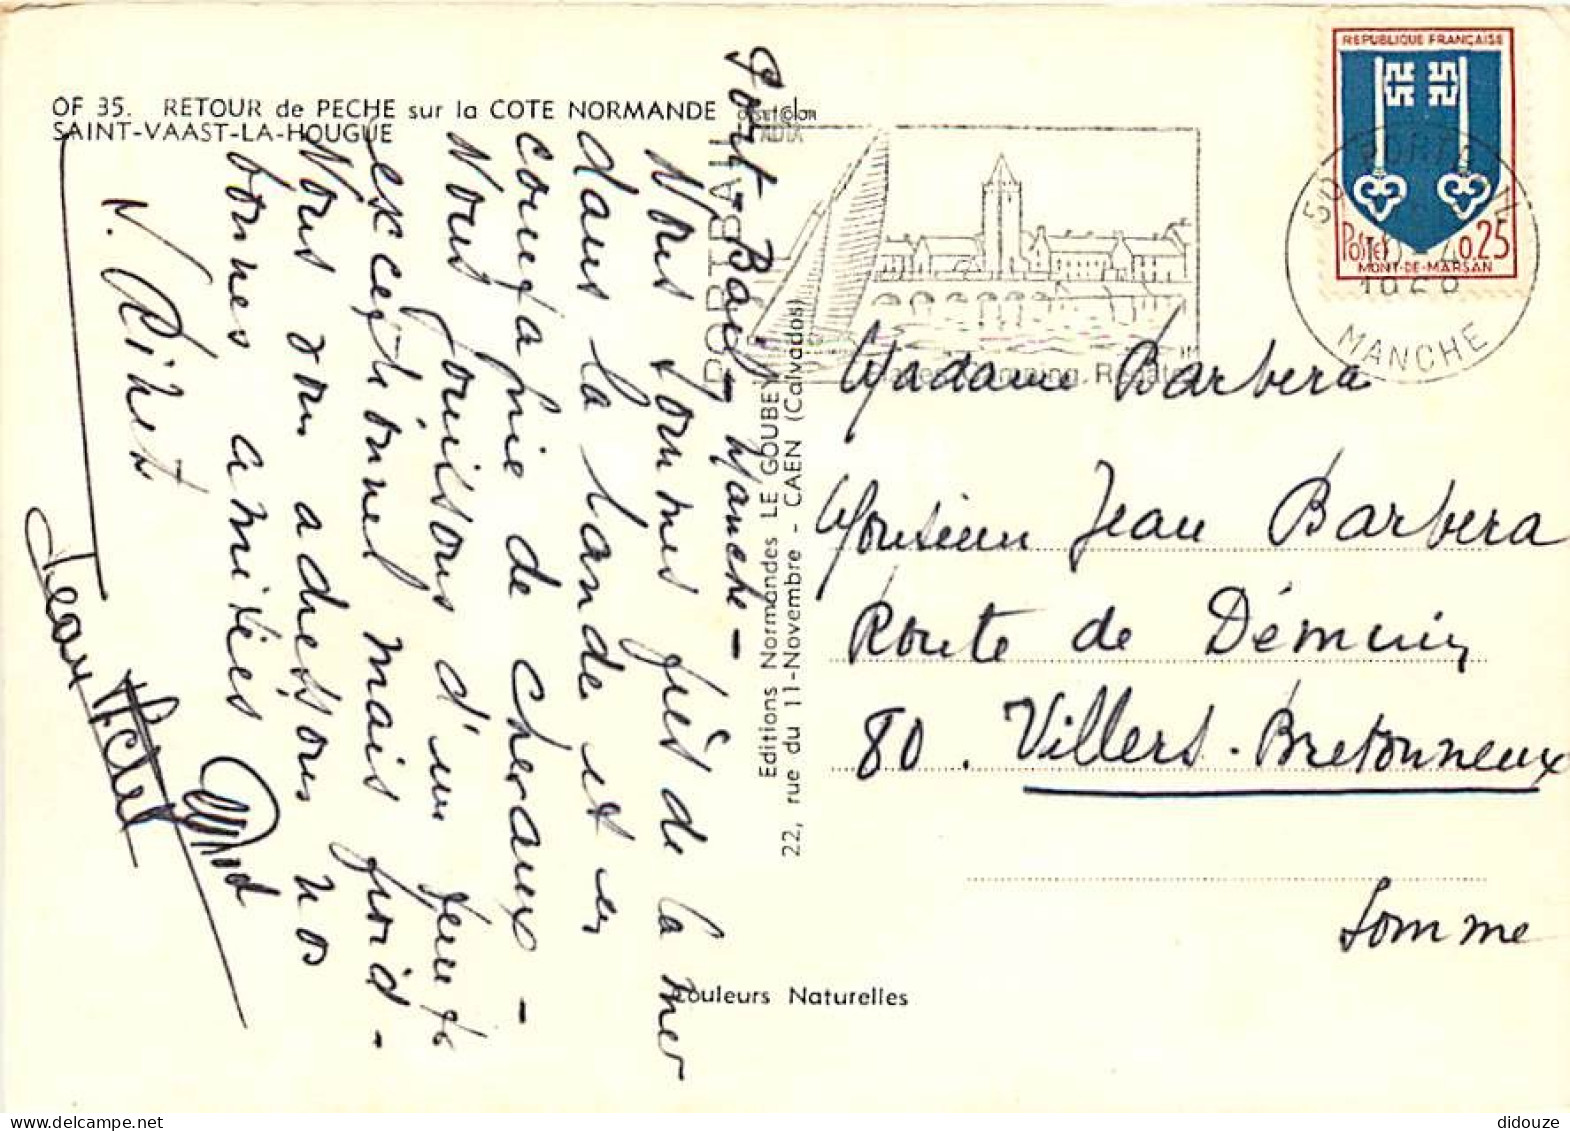 OF 35. RETOUR de PECHE sur la COTE NORMANDE
SAINT-VAAST-LA-HOUGUE
Port-Bail - Manche -
Nous sommes près de la mer
dans la lande et en
compagnie de chevaux -
Nous jouissons d'un temps
exceptionnel mais froid -
Nous vous adressons nos
bonnes amitiés
Jean
Editions Normandes LE GOUBEY
22, rue du 11-Novembre - CAEN (Calvados)
Couleurs Naturelles
PORTBAIL
Plages, Camping, Régates
REPUBLIQUE FRANÇAISE
POSTES 0,25
MONT-DE-MARSAN
50 PORTBAIL
MANCHE
Madame Barbera
Monsieur Jean Barbera
Route de Démuin
80. Villers-Bretonneux
Somme
didouze